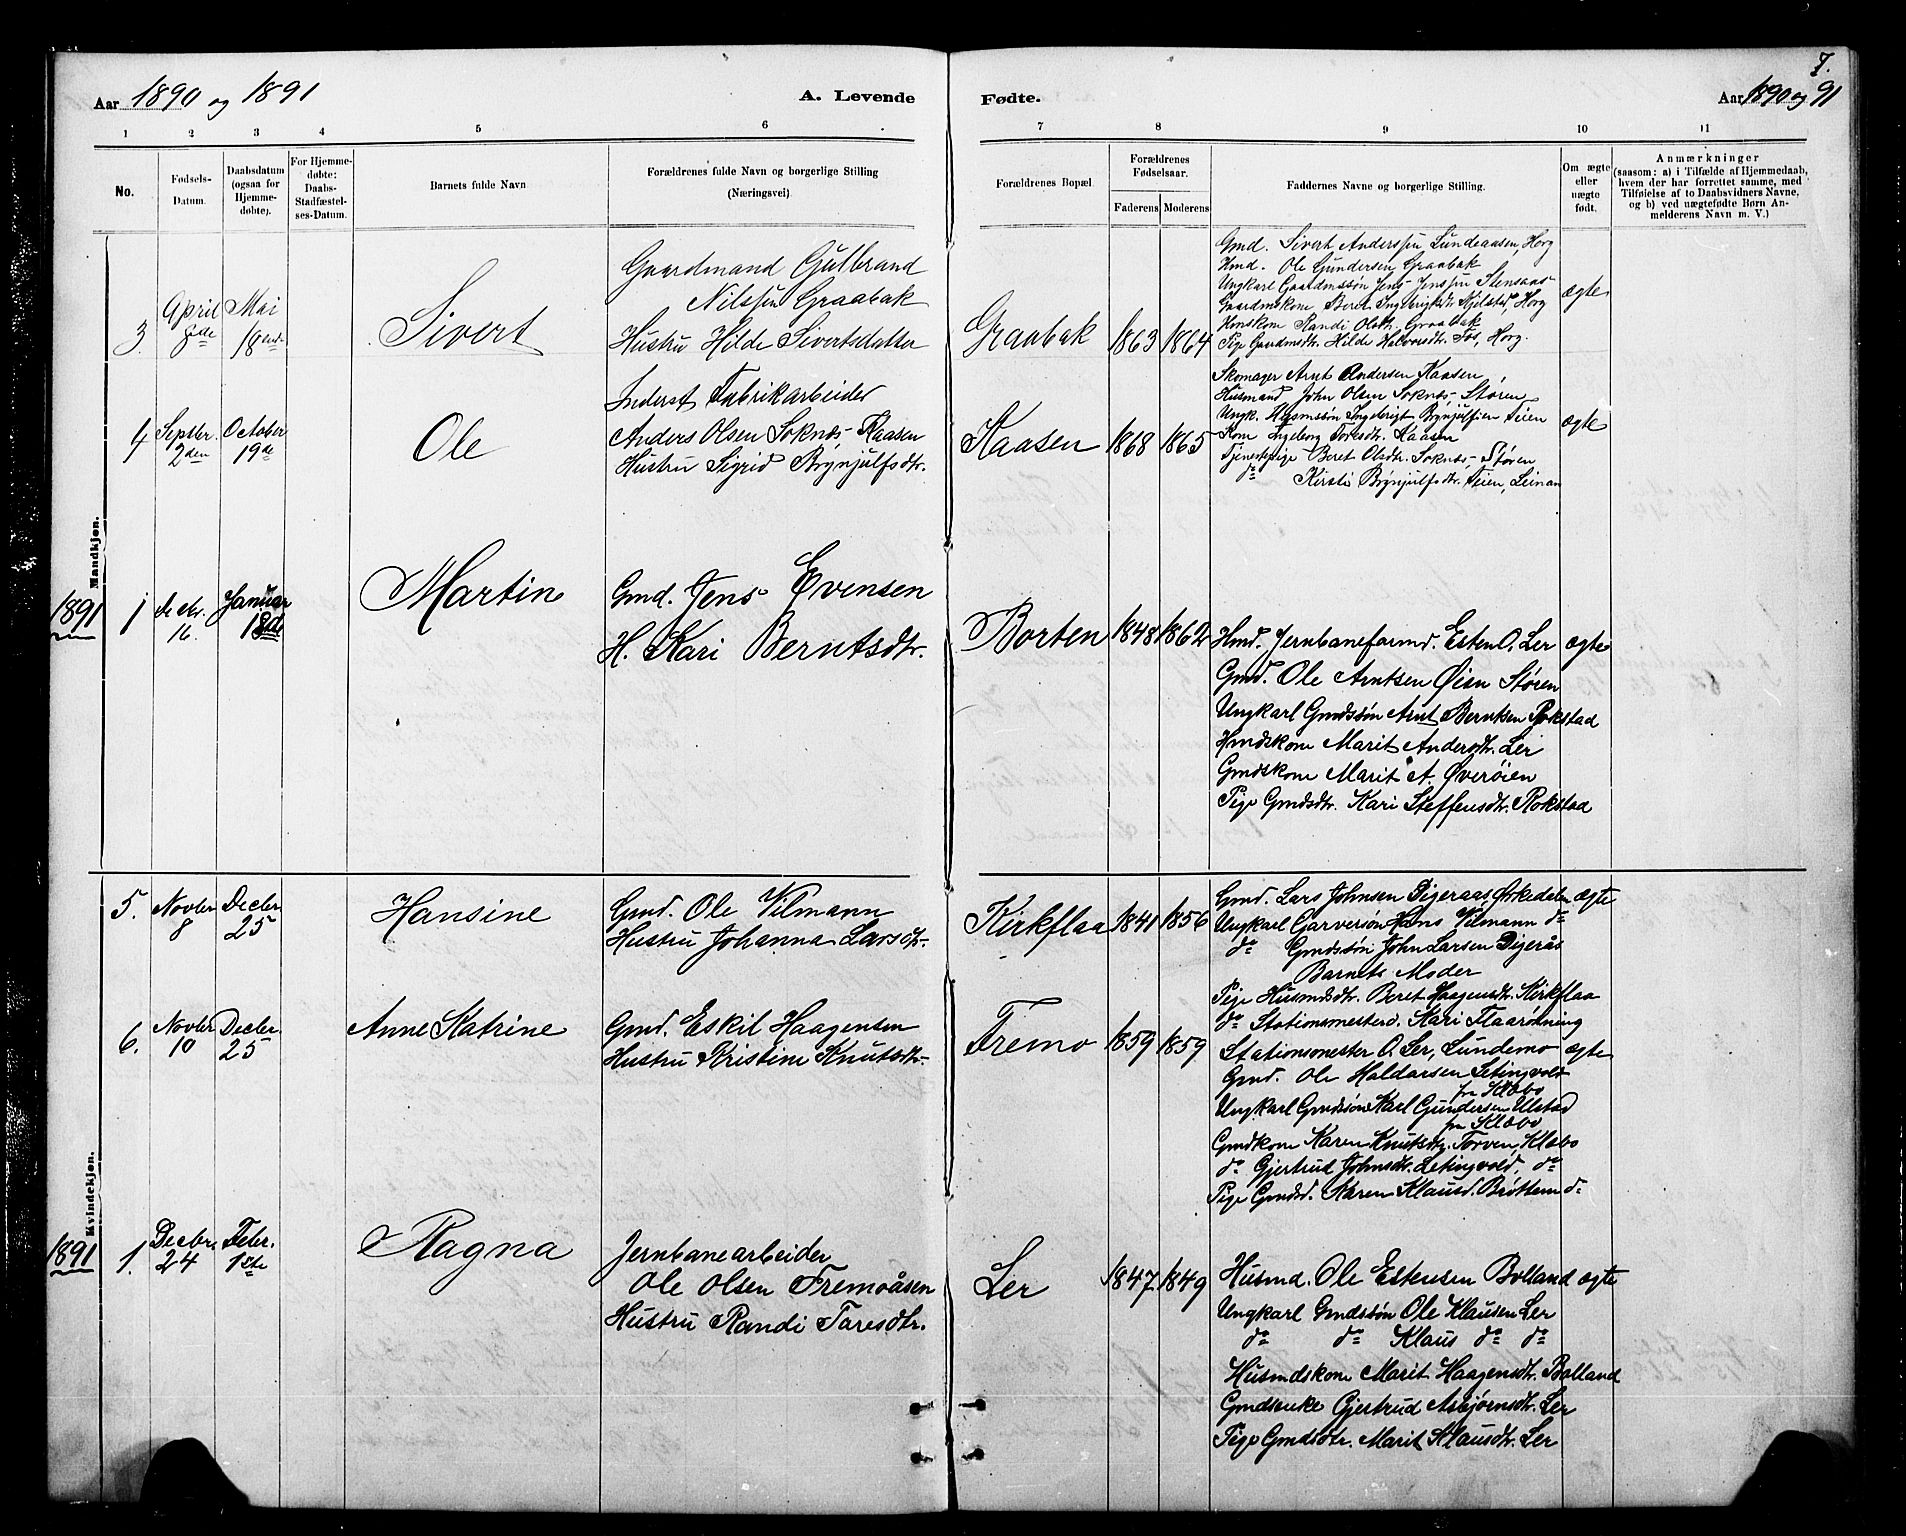 7.
Aar 1890 og 1891
A. Levende
Fødte.
Aar 1890 og 91
1 2 3 4 5 6 7 8 9 10 11
No.
Fødsels-Datum.
Daabsdatum (ogsaa for Hjemme-døbte).
For Hjemme-døbte: Daabs-Stadfæstel-ses-Datum.
Barnets fulde Navn
Forældrenes fulde Navn og borgerlige Stilling
(Næringsvei).
Forældrenes Bopæl.
Forældrenes Fødselsaar.
Faderens Moderens
Faddernes Navne og borgerlige Stilling.
Om ægte eller uægte født.
Anmærkninger
(saasom: a) i Tilfælde af Hjemmedaab,
hvem der har forrettet samme, med
Tilføielse af to Daabsvidners Navne,
og b) ved uægtefødte Børn An-
melderens Navn m. V.)
Mandkjøn.
3. April 8de Mai 18end
Sivert
Gaardmand Gulbrand
Nilssen Graabak
Hustru Hilde Sivertsdatter
Graabak 1863 1864
Gmd. Sivert Anderssen Lundeaasen, Horg
Hmd. Ole Gundersen Graabak
Ungkarl Gaardmssøn Jens Jenssen Stensaas
Gaardmskone Beret Ingebrigtsdtr. Njelstad, Horg
Hmskone Randi Olsdtr. Graabak
Pige Gaardmsdtr. Hilde Halvorsdtr. Fos, Horg.
ægte
4 Septbr. 2den October 19de
Ole
Inderst Fabrikarbeider
Anders Olsen Soknæs-Kaasen
Hustru Sigrid Brynjulfsdtr.
Kaasen 1868 1865
Skomager Arnt Andersen Kaasen
Husmand John Olsen Soknæs, Støren
Ungk. Husmssøn Ingebrigt Brynjulfsen Teien
Kone Ingeborg Toresdtr. Kaasen
Tjenestepige Beret Olsdtr. Soknæs, Støren
do Kirsti Brynjulfsdtr. Teien, Leinan
ægte
1891 1 Decbr. 16. Januar 18de
Martin
Gmd. Jens Evensen
H. Kari Berntsdtr.
Borten 1848 1862
Hmd. Jernbaneformd. Esten O. Ler
Gmd. Ole Arntsen Øien Støren
Ungkarl Gmdssøn Arnt Berntsen Rokstad
Hmdskone Marit Andersdtr. Ler
Gmdskone Marit A. Øverøien
Pige Gmdsdtr. Kari Steffensdtr. Rokstad
ægte
Kvindekjøn.
5. Novbr 8 Decbr 25
Hansine
Gmd. Ole Vilmann
Hustru Johanna Larsdtr.
Kirkflaa 1841 1856
Gmd. Lars Johnsen Digeraas, Orkedalen
Ungkarl Garversøn Hans Vilmann do
do Gmdssøn John Larsen Digerås
Barnets Moder
Pige Husmdsdtr. Beret Haagensdtr. Kirkflaa
do Stationsmesterd. Kari Flaarønning
ægte
6. Novbr 10 Decbr. 25
Anne Katrine
Gmd. Eskil Haagensen
Hustru Kristine Knutsdtr.
Fremo 1859 1859
Stationsmester O. Ler, Lundemo
Gmd. Ole Haldorsen Letingvold
fra Klæbo
Ungkarl Gmdssøn Karl Gundersen Ulstad
fra Klæbo
Gmdkone Karen Knutsdtr. Torven, Klæbo
do Gjertrud Johnsdtr. Letingvold, do
Pige Gmdsd. Karen Klausd. Brøttem do
ægte
1891 1. Decbr. 24 Febr. 1ste
Ragna
Jernbanearbeider
Ole Olsen Fremoåsen
Hustru Randi Toresdtr.
Ler 1847 1849
Husmd. Ole Estensen Bolland
Ungkarl Gmdssøn Ole Klausen Ler
do do Klaus do do
Husmdskone Marit Haagensdtr. Bolland
Gmdsenke Gjertrud Asbjørnsdtr. Ler
Pige Gmdsdtr. Marit Klausdtr. Ler
ægte